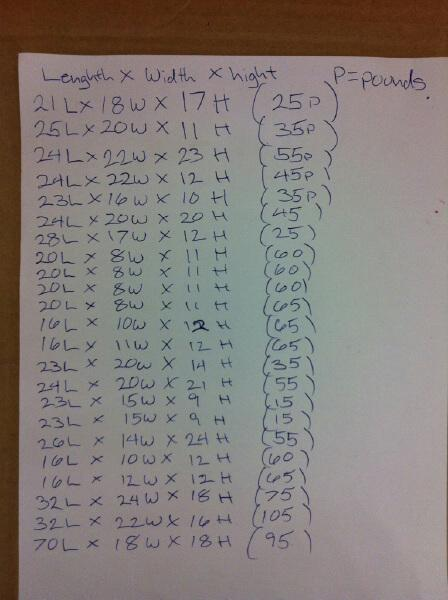 Lenghth x width x hight P=pounds
21L x 18W x 17H (25P)
25L x 20W x 11 H (35P)
24L x 22W x 23 H (55P)
24L x 22W x 12 H (45P)
23L x 16W x 10 H (35P)
24L x 20W x 20H (45)
28L x 17W x 12H (25)
20L x 8W x 11 H (60)
20L x 8W x 11 H (60)
20L x 8W x 11 H (60)
20L x 8W x 11 H (65)
16L x 10W x 12 H (65)
16L x 11W x 12 H (65)
23L x 20W x 14 H (35)
24L x 20W x 21 H (55)
23L x 15W x 9 H (15)
23L x 15W x 9 H (15)
26L x 14W x 24H (55)
16L x 10W x 12H (60)
16L x 12W x 12H (65)
32L x 24W x 18H (75)
32L x 22W x 16H (105)
70L x 18W x 18H (95)